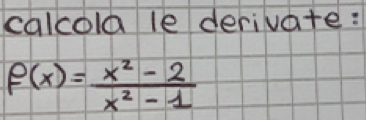 calcola le derivate:
f(x) = \frac{x² - 2}{x² - 1}